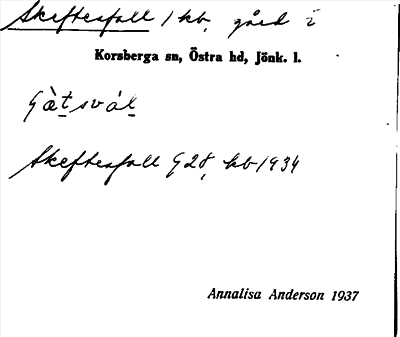 Skeftesfall 1 kb, gård i
Korsberga sn, Östra hd, Jönk. l.
Skeftesfall G28, kb 1934
Annalisa Anderson 1937